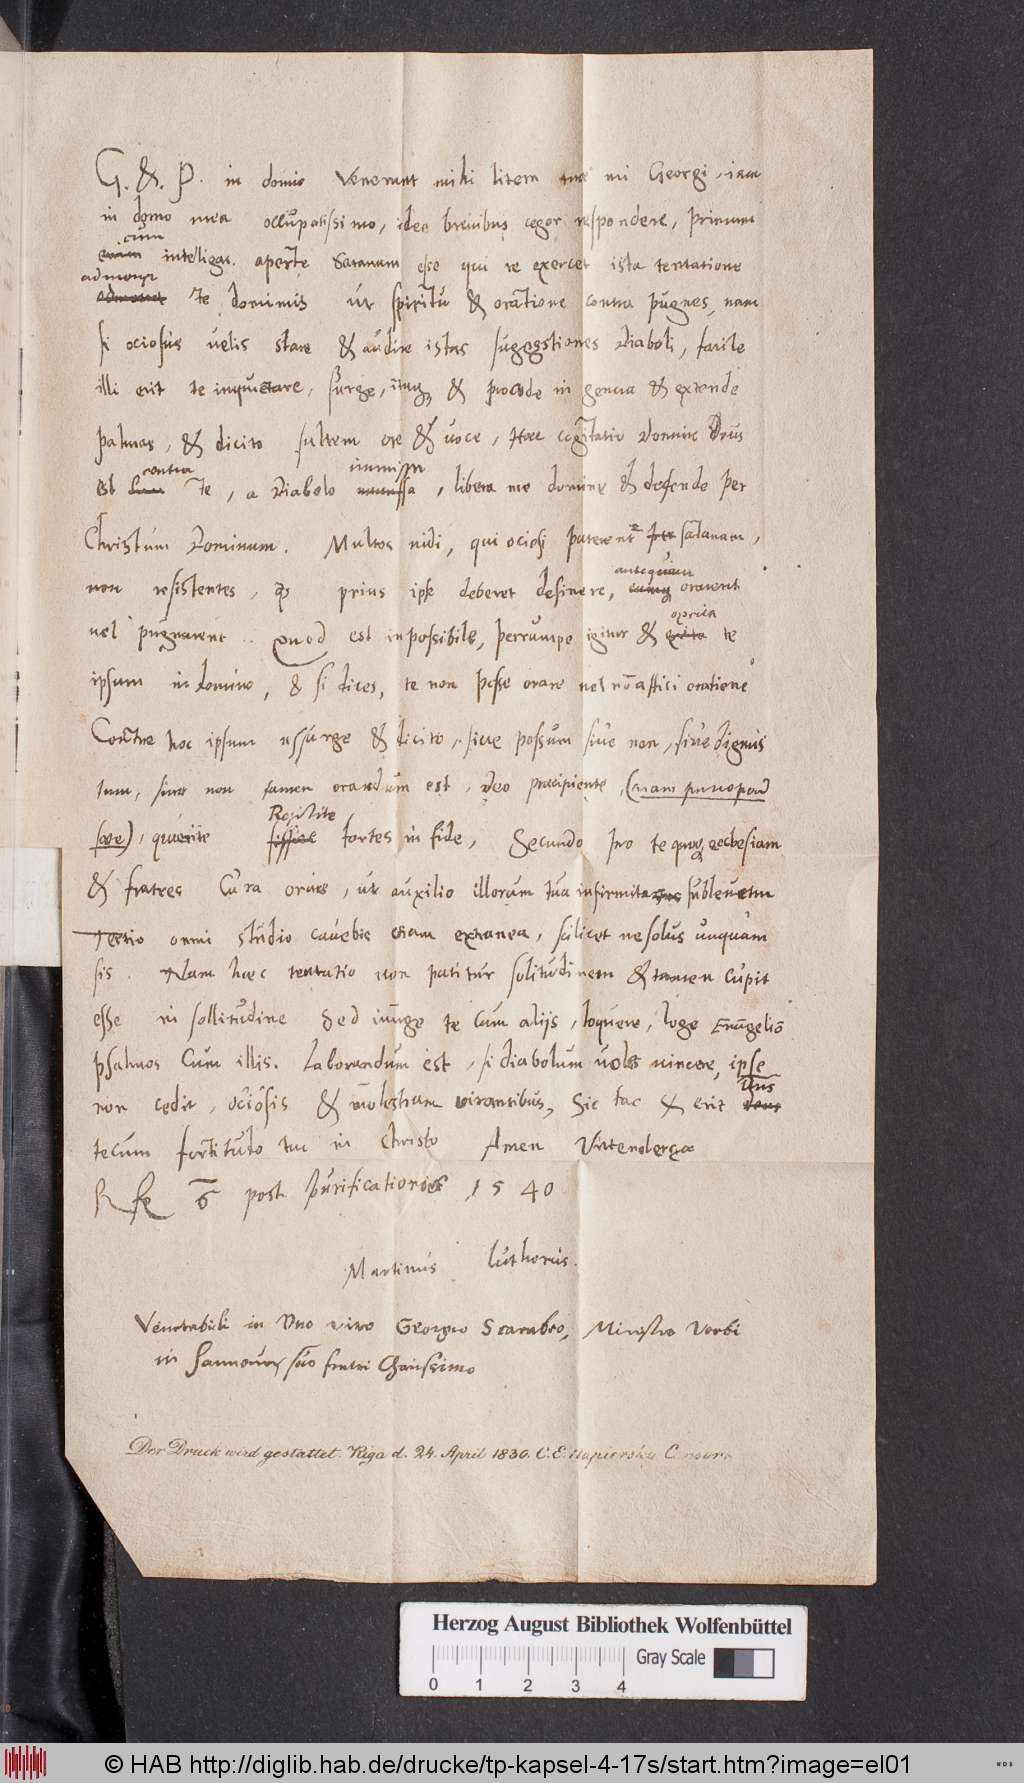 G. & P. in domino Venerunt mihi literae tuae mi Georgi, iam
in domo mea occupatissimo, ideo brevibus cogor respondere, Primum
cum
intelligas aperte Satanam esse qui te exercet ista tentatione
admonet
te dominus ut spiritu & oratione contra pugnes, nam
si ociosus velis stare & audire istas suggestiones Diaboli, facile
illi erit te inquietare, surge, & procede in genua & extende
palmas, & dicito saltem ore & voce, Haec cogitatio Domine Deus
contra immissa
est te, a Diabolo, libera me domine & defende per
Christum Dominum. Multos vidi, qui ociosi paterentur satanam,
antequam
non resistentes, prius ipse deberet desinere, orarent
exercita
vel pugnarent.. Quod est inpossibile, perrumpe igitur & te
ipsum in domino, & si dices, te non posse orare vel non affici oratione
Contra hoc ipsum assurge & dicito, sive possum sive non, sive dignus
sum, sive non tamen orandum est, Deo praecipiente,
Resistite
fortes in fide, Secundo pro te quoque ecclesiam
& fratres Cura orare, ut auxilio illorum tua infirmitas sublevetur
Tertio omni studio cavebis etiam extranea, scilicet ne solus unquam
sis. Nam haec tentatio non patitur solitudinem & tamen Cupit
esse in sollitudine Sed iunge te Cum alijs, loquere, lege Evangeliō
psalmos Cum illis. Laborandum est, si diabolum voles vincere, ipse
Dns
non cedit, ociosis & molestiam vitantibus, Sic fac & erit
tecum fortitudo tua in Christo Amen Vittenbergae
6 post purificationis 1540
Martinus Lutherus.
Venerabili in Dno viro Georgio Scarabeo, Ministro Verbi
in Hannover suo fratri Charissimo
Der Druck wird gestattet. Riga d. 24. April 1830. C. E. Napiersky Censor.
Herzog August Bibliothek Wolfenbüttel
Gray Scale
0 1 2 3 4
© HAB http://diglib.hab.de/drucke/tp-kapsel-4-17s/start.htm?image=el01